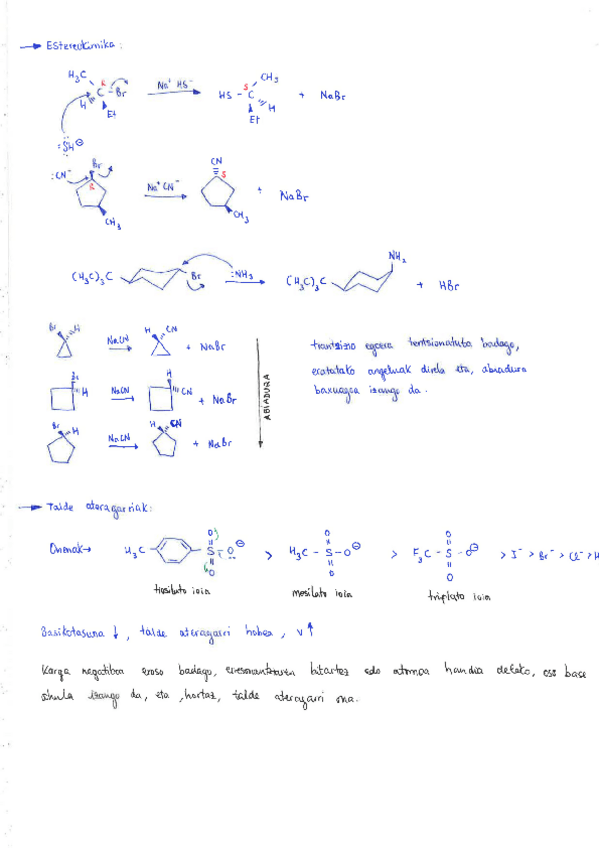 → Estereokimika:
H₃C R C Br H Et Na⁺ HS⁻ HS - C S CH₃ H Et + NaBr
:SH⊖
:CN⁻ Br R CH₃ Na⁺ CN⁻ CN S CH₃ + NaBr
(H₃C)₃C Br :NH₃ (H₃C)₃C NH₂ + HBr
Br H NaCN H CN + NaBr
Br H NaCN H CN + NaBr
Br H NaCN H CN + NaBr
ABIADURA
trantsizio egoera tentsionatuta badago,
eratutako angeluak direla eta, abiadura
baxuagoa izango da.
→ Talde ateragarriak:
Onenak → H₃C O S O⊖ O > H₃C - S - O⊖ O O > F₃C - S - O⊖ O O > I⁻ > Br⁻ > Cl⁻ > H
tosilato ioia mesilato ioia triplato ioia
Basikotasuna ↓, talde ateragarri hobea, v↑
Karga negatiboa eroso badago, erresonantziaren bitartez edo atomoa handia delako, oso base
ahula izango da, eta, hortaz, talde ateragarri ona.